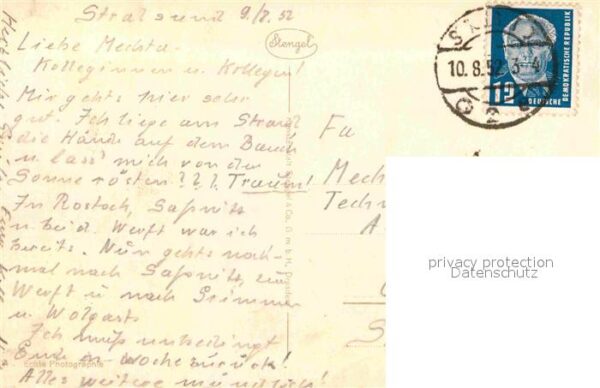 Stralsund 9./8. 52
Liebe Mechta-
Kolleginnen u. Kollegen!
Mir gehts hier sehr
gut. Ich liege am Strand
die Hände auf dem Bauch
u. lass' mich von der
Sonne rösten??? Traum!
In Rostock, Saßnitz
u. beid. Werft war ich
bereits. Nun gehts noch-
mal nach Saßnitz, zur
Werft u. nach Grimmen
u. Wolgast.
Ich muß unbedingt
Ende der Woche zurück!
Alles weitere mündlich!
Stengel
Co. G.m.b.H., Dresden
Echte Photographie
Fa
Mech
Techn
10.8.52.3-4
12
DEUTSCHE
DEMOKRATISCHE REPUBLIK
privacy protection
Datenschutz